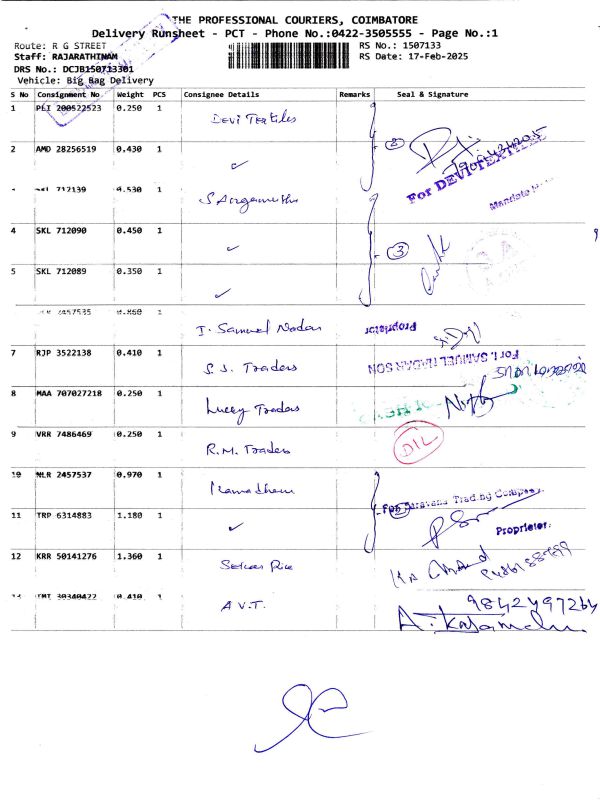 THE PROFESSIONAL COURIERS, COIMBATORE
Delivery Runsheet - PCT - Phone No.:0422-3505555 - Page No.:1
Route: R G STREET RS No.: 1507133
Staff: RAJARATHINAM RS Date: 17-Feb-2025
DRS No.: DCJB150713301
Vehicle: Big Bag Delivery
S No Consignment No Weight PCS Consignee Details Remarks Seal & Signature
1 PLI 200522523 0.250 1 Devi Textiles
2 AMD 28256519 0.430 1 ✓ 2
For DEVI TEXTILES
712139 0.530 1
4 SKL 712090 0.450 1 ✓ 3
5 SKL 712089 0.350 1 ✓
2457535 0.860 1 I. Samuel Nadar
Proprietor
For I. SAMUEL NADAR SON
7 RJP 3522138 0.410 1 S.S. Traders
8 MAA 707027218 0.250 1 Lucky Traders
9 VRR 7486469 0.250 1 R.M. Traders
DIL
10 NLR 2457537 0.970 1
For Saravana Trading Company
11 TRP 6314883 1.180 1 ✓
Proprietor
12 KRR 50141276 1.360 1
13 TMT 30340422 0.410 1 A V.T.
9842497264